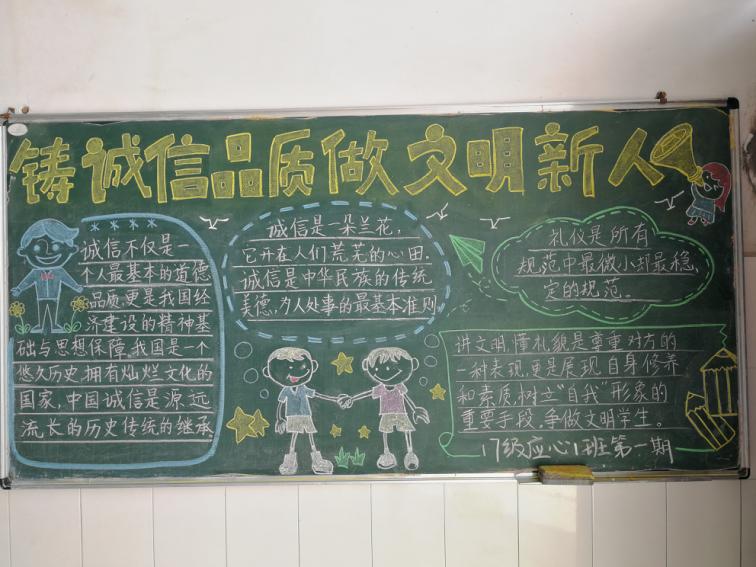 铸诚信品质做文明新人
诚信不仅是一
个人最基本的道德
品质,更是我国经
济建设的精神基
础与思想保障,我国是一个
悠久历史,拥有灿烂文化的
国家,中国诚信是源远
流长的历史传统的继承
诚信是一朵兰花,
它开在人们荒芜的心田.
诚信是中华民族的传统
美德,为人处事的最基本准则
礼仪是所有
规范中最微小却最稳
定的规范。
讲文明,懂礼貌是尊重对方的
一种表现,更是展现自身修养
和素质,树立“自我”形象的
重要手段,争做文明学生。
17级应心1班第一期